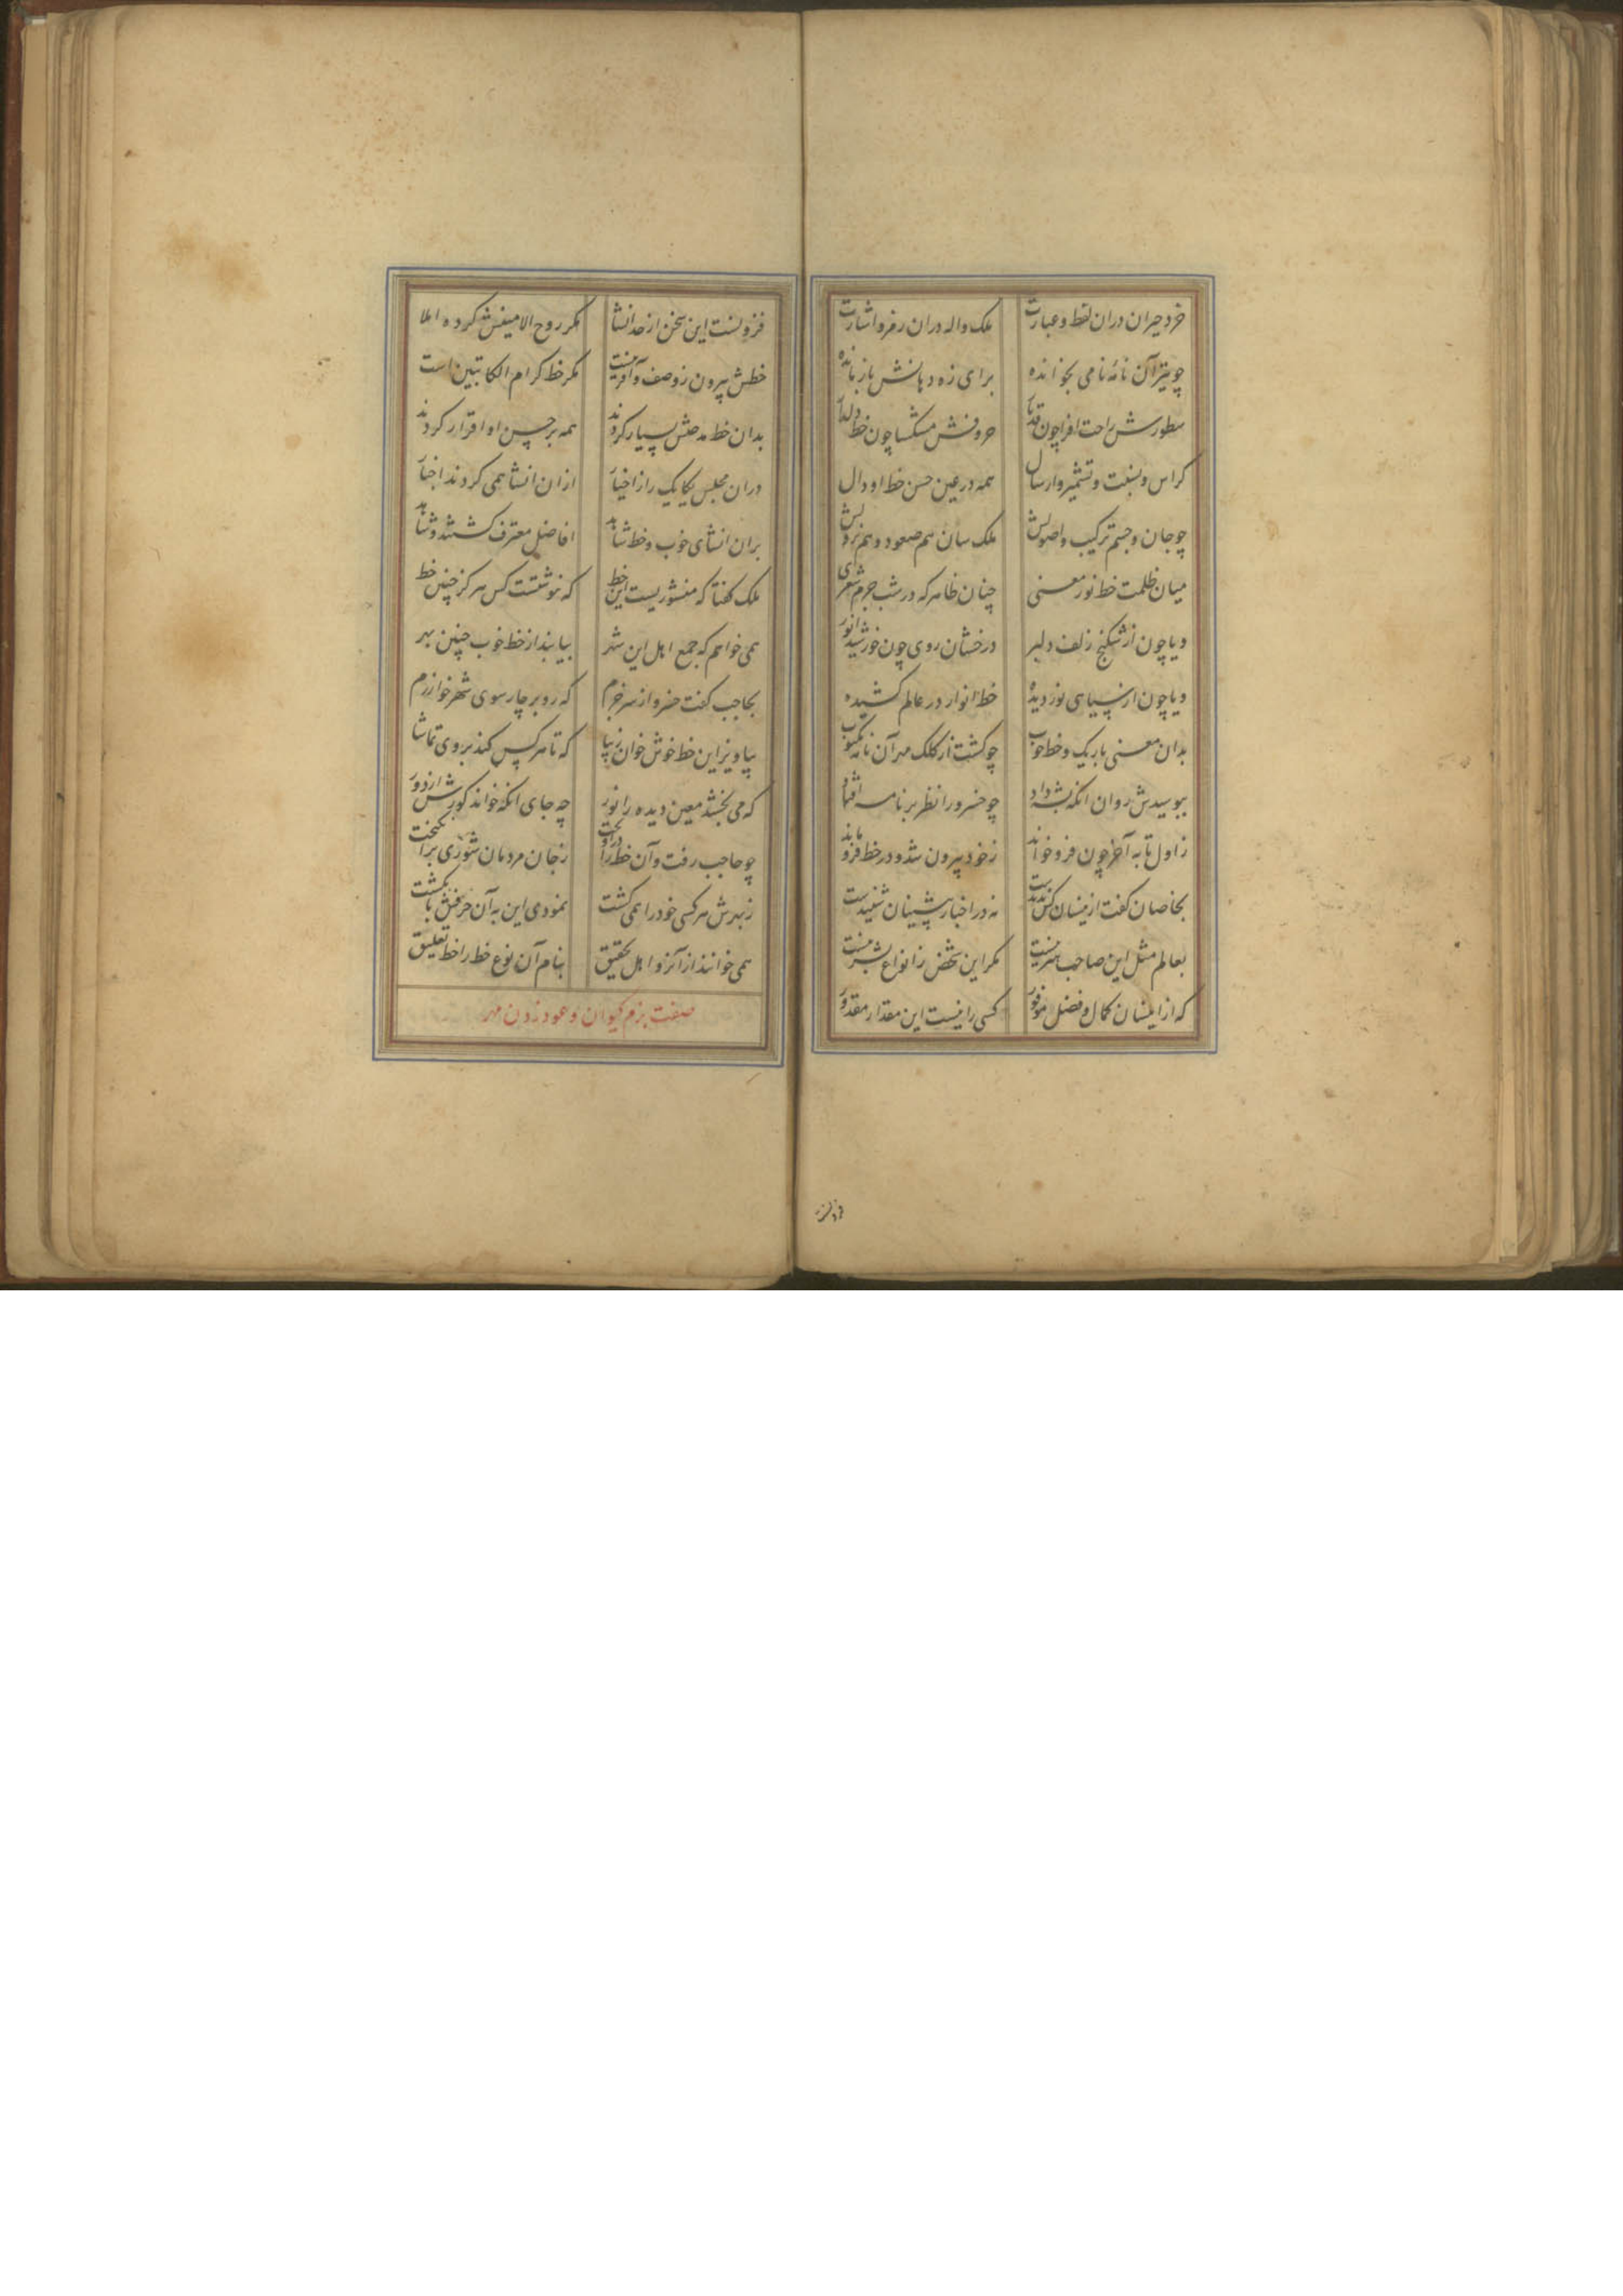 خرد حیران دران لفظ و عبارت ملک واله دران رمز و اشارت
چو تیر آن نامهٔ نامی بخوانده برای زه دهانش باز مانده
سطورش راحت افزا چون قد یار حروفش مشکسا چون خط دلدار
کراس و نسبت و تشمیر و ارسال همه در عین حسن خط او دال
چو جان و جسم ترکیب و اصولش ملک سان هم صعود و هم نزولش
میان ظلمت خط نور معنی چنان ظاهر که در شب جرم شعری
و یا چون از شکنج زلف دلبر درخشان روی چون خورشید انور
و یا چون از سیاهی نور دیده خط انوار در عالم کشیده
بدان معنی باریک و خط خوب چو گشت از کلک مهر آن نامه مکتوب
ببوسیدش روان آنگه بشه داد چو خسرو را نظر بر نامه افتاد
ز اول تا به آخر چون فرو خواند ز خود بیرون شد و در خط فرو ماند
بخاصان گفت ازینسان کس ندیدست نه در اخبار پیشینان شنیدست
بعالم مثل این صاحب هنر نیست مگر این شخص ز انواع بشر نیست
که از اینسان کمال و فضل موفور کسی را نیست این مقدار مقدور
فزونست این سخن از حد انشا مگر روح الامینش کرده املا
خطش بیرون ز وصف و آفرینست مگر خط کرام الکاتبین است
بدان خط مدحتش بسیار کردند همه بر حسن او اقرار کردند
دران مجلس یکایک را ز اخیار ازان انشا همی کردند اخبار
بران انشای خوب و خط شاهد افاضل معترف گشتند و شاهد
ملک گفتا که منشوریست این خط که ننوشتست کس هرگز چنین خط
همی خواهم که جمع اهل این شهر بیابند از خط خوب چنین بهر
بحاجب گفت خسرو از سر جزم که رو بر چارسوی شهر خوارزم
بیاویز این خط خوش خوان زیبا که تا هر کس کند بر وی تماشا
که می بخشد معین دیده را نور چه جای آنکه خواند کورش از دور
چو حاجب رفت و آن خط را درآویخت ز جان مردمان شوری برانگیخت
ز بهرش هر کسی خود را همی کشت نمودی این به آن حرفش بانگشت
همی خوانند از آنرو اهل تحقیق بنام آن نوع خط را خط تعلیق
صفت بزم کیوان و عود زدن مهر
فزونست